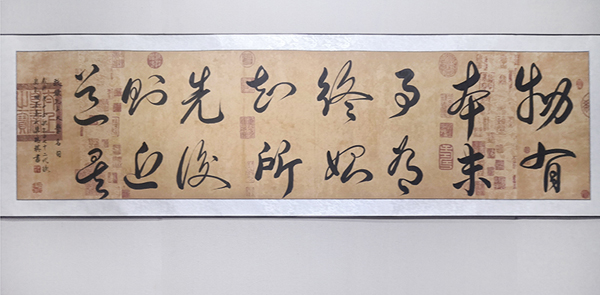 物有
本末
事有
終始
知所
先後
則近
道矣